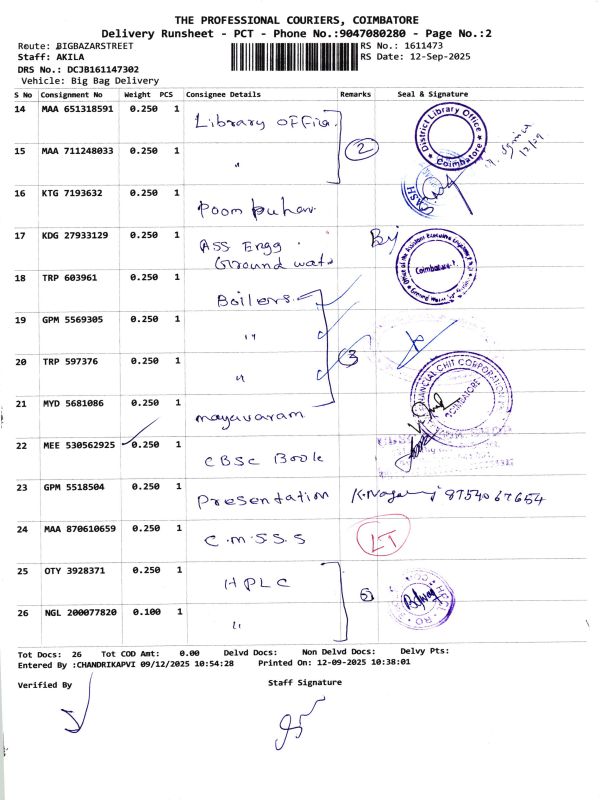 THE PROFESSIONAL COURIERS, COIMBATORE
Delivery Runsheet - PCT - Phone No.:9047080280 - Page No.:2
Route: BIGBAZARSTREET RS No.: 1611473
Staff: AKILA RS Date: 12-Sep-2025
DRS No.: DCJB161147302
Vehicle: Big Bag Delivery
S No Consignment No Weight PCS Consignee Details Remarks Seal & Signature
14 MAA 651318591 0.250 1 Library office
District Library Office
Coimbatore
12/09
15 MAA 711248033 0.250 1 " 2
16 KTG 7193632 0.250 1 Poompuhar
17 KDG 27933129 0.250 1 Ass Engg
Ground water
Coimbatore
18 TRP 603961 0.250 1 Boilers
19 GPM 5569305 0.250 1 "
20 TRP 597376 0.250 1 " 3
FINANCIAL CHIT CORPORATION
COIMBATORE
21 MYD 5681086 0.250 1 mayavaram
22 MEE 530562925 0.250 1 CBSC Book
23 GPM 5518504 0.250 1 Presentation K.Nagaraj 9754067654
24 MAA 870610659 0.250 1 C.M.S.S.S LT
25 OTY 3928371 0.250 1 HPLC
26 NGL 200077820 0.100 1 "
Tot Docs: 26 Tot COD Amt: 0.00 Delvd Docs: Non Delvd Docs: Delvy Pts:
Entered By :CHANDRIKAPVI 09/12/2025 10:54:28 Printed On: 12-09-2025 10:38:01
Verified By Staff Signature